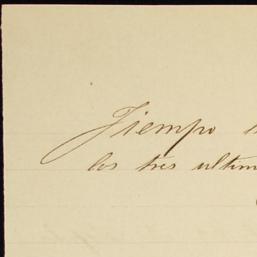 Tiempo
los tres ultim